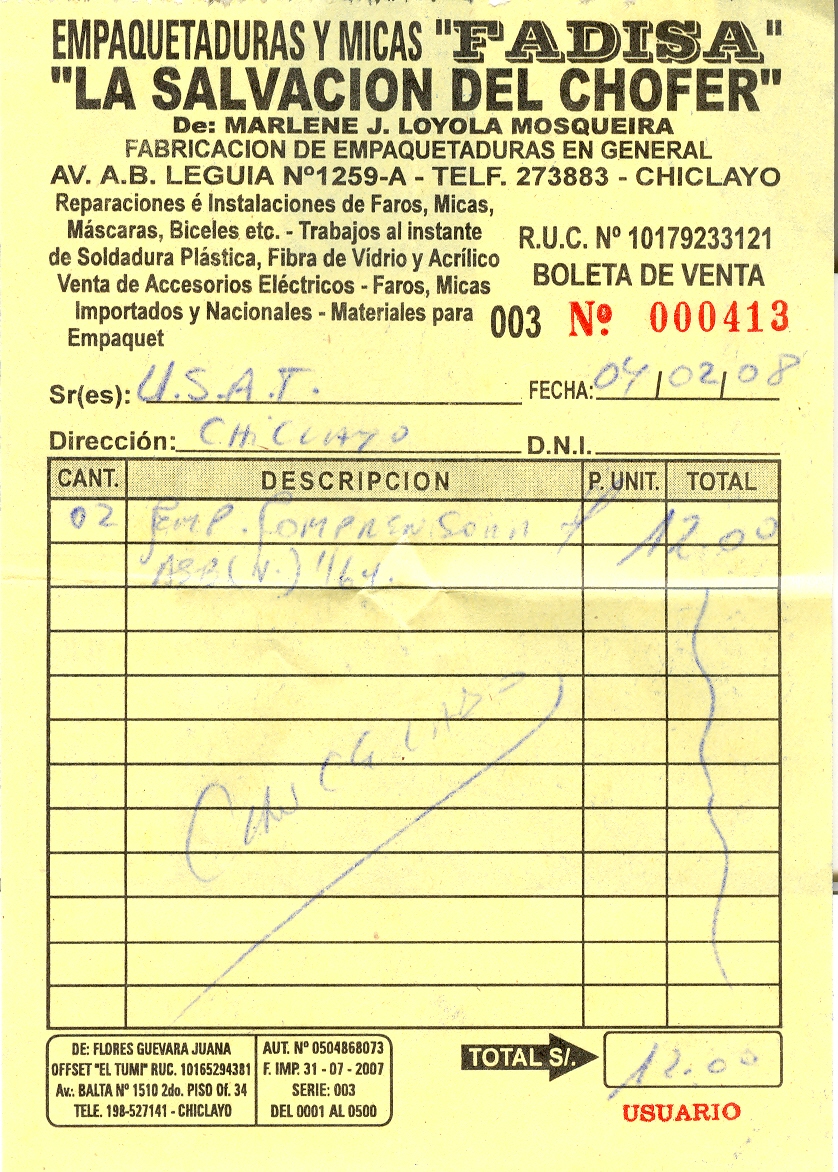 EMPAQUETADURAS Y MICAS "FADISA"
"LA SALVACION DEL CHOFER"
De: MARLENE J. LOYOLA MOSQUEIRA
FABRICACION DE EMPAQUETADURAS EN GENERAL
AV. A.B. LEGUIA Nº1259-A - TELF. 273883 - CHICLAYO
Reparaciones é Instalaciones de Faros, Micas,
Máscaras, Biceles etc. - Trabajos al instante
de Soldadura Plástica, Fibra de Vídrio y Acrílico
Venta de Accesorios Eléctricos - Faros, Micas
Importados y Nacionales - Materiales para
Empaquet
R.U.C. Nº 10179233121
BOLETA DE VENTA
003 Nº 000413
Sr(es): U.S.A.T. FECHA: 04/02/08
Dirección: CHICLAYO D.N.I.
CANT. DESCRIPCION P. UNIT. TOTAL
02 EMP. 12.00
1/64.
Cancelado
DE: FLORES GUEVARA JUANA
OFFSET "EL TUMI" RUC. 10165294381
Av.: BALTA Nº 1510 2do. PISO Of. 34
TELE. 198-527141 - CHICLAYO
AUT. Nº 0504868073
F. IMP. 31 - 07 - 2007
SERIE: 003
DEL 0001 AL 0500
TOTAL S/. 12.00
USUARIO